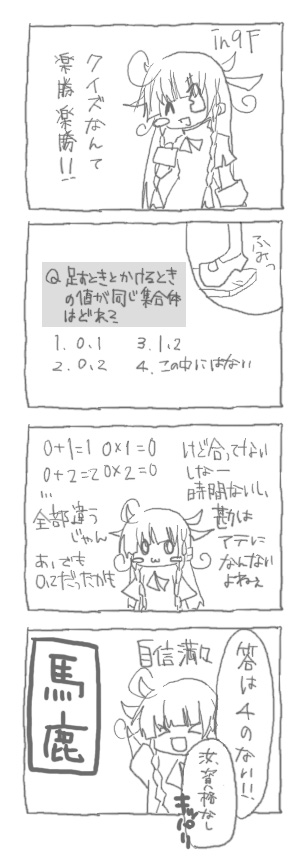 in9F
クイズなんて
楽勝楽勝!!
ふみっ
Q 足すときとかけるとき
の値が同じ集合体
はどれ?
1. 0,1
2. 0,2
3. 1,2
4. この中にはない
0+1=1 0×1=0
0+2=2 0×2=0
...
全部違う
じゃん
あ、でも
0,2だったかも
けど合ってない
しなー
時間ないし、
勘は
アテに
なんない
よねぇ
自信満々
答は4のない!!
馬鹿
汝、資格なし
キッパリ